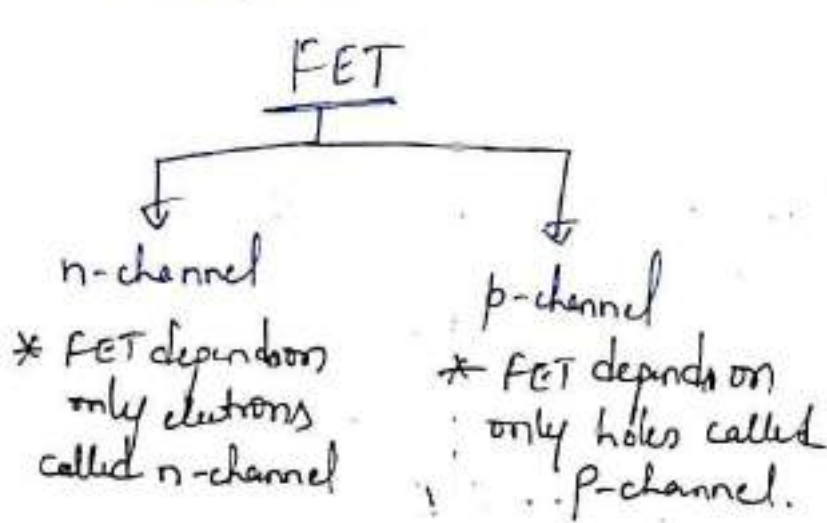 FET
n-channel
* FET depends on
only electrons
called n-channel
p-channel
* FET depends on
only holes called
p-channel.